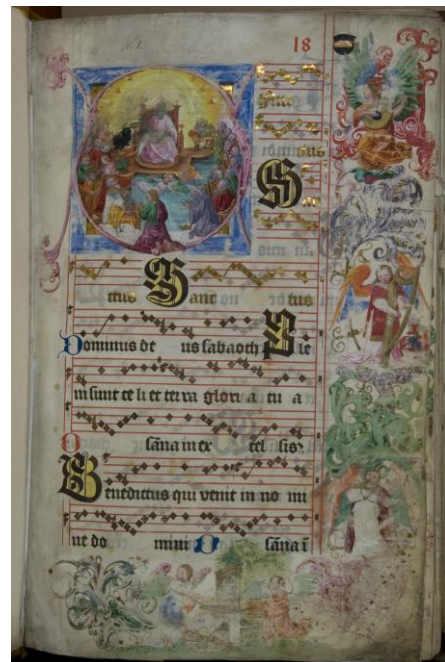 18
S
an
ctus Sanc tus
Dominus de us sabaoth Ple
ni sunt celi et terra glori a tu a
O sana in ex cel sis
Benedictus qui venit in no mi
ne do mini O sana ī